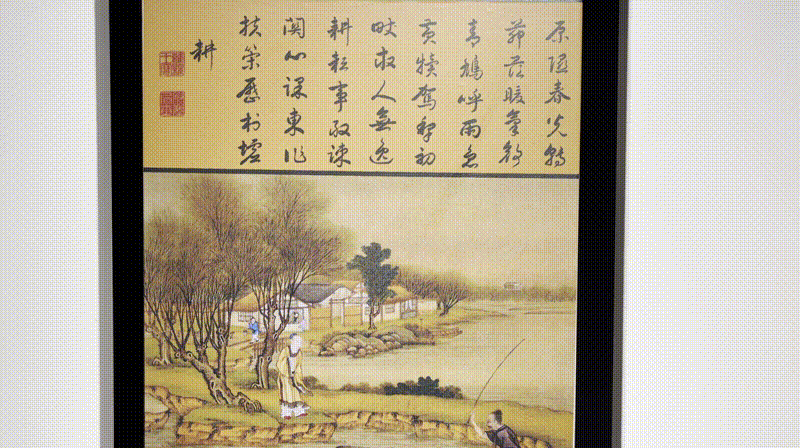 原隰春光轉
茆茨暖氣舒
青鳩呼雨急
黃犢駕犁初
畎畝人無逸
耕耘事敢疎
關心課東作
扶策歷村墟
耕